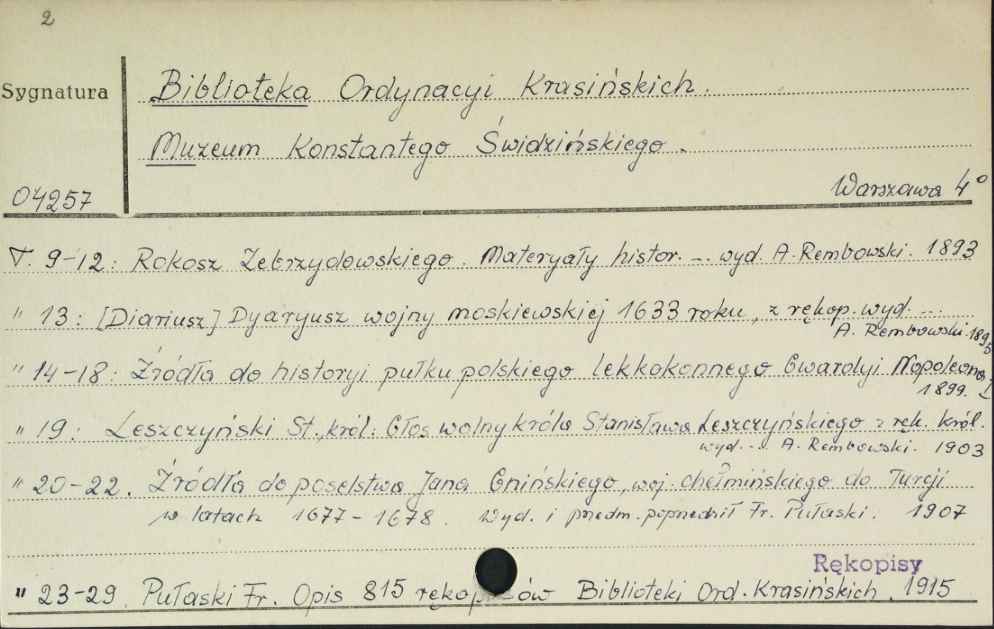 2
Sygnatura
Biblioteka Ordynacyi Krasińskich.
Muzeum Konstantego Świdzińskiego.
04257
Warszawa 4°
T. 9-12: Rokosz Zebrzydowskiego. Materyały histor. ... wyd. A. Rembowski. 1893
" 13: [Diariusz] Dyaryusz wojny moskiewskiej 1633 roku, z rękop. wyd. ...
A. Rembowski. 1895
" 14-18: Źródła do historyi pułku polskiego lekkokonnego Gwardyi Napoleona I
1899.
" 19: Leszczyński St., król: Głos wolny króla Stanisława Leszczyńskiego z ręk. król.
wyd. ... A. Rembowski. 1903
" 20-22. Źródła do poselstwa Jana Gnińskiego, woj. chełmińskiego do Turcji
w latach 1677-1678. Wyd. i przedm. poprzedził Fr. Pułaski. 1907
Rękopisy
" 23-29. Pułaski Fr. Opis 815 rękopisów Biblioteki Ord. Krasińskich. 1915